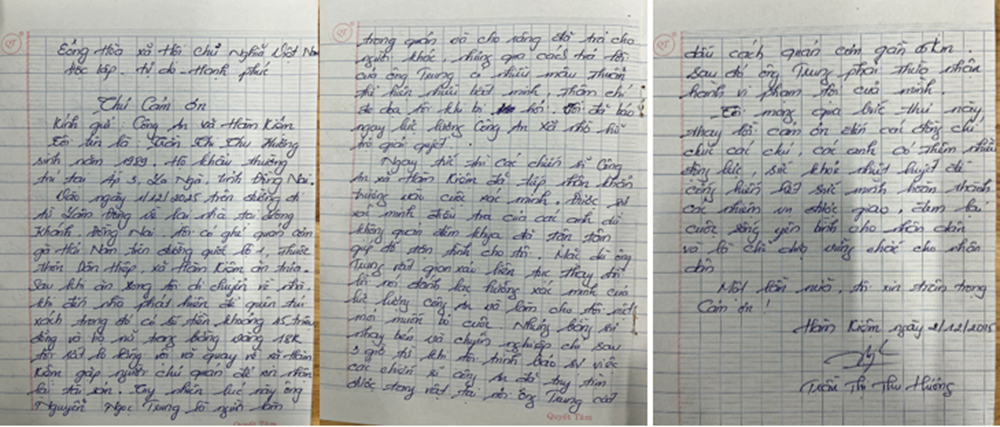 Cộng Hòa xã Hội chủ Nghĩa Việt Na
Độc lập - Tự do - Hạnh phúc
Thư Cảm ơn
Kính gửi: Công An xã Hàm Kiệm
Tôi tên là: Trần Thị Thu Hường
sinh năm 1989. Hộ khẩu thường
trú tại ấp 3, La Ngà, tỉnh Đồng Nai.
Vào ngày 1/12/2025 trên đường đi
từ Lâm Đồng về lại nhà tại
Khánh, Đồng Nai. Tôi có ghé quán cơm
gà Hải Nam bên đường quốc lộ 1, thuộc
thôn Dân Hiệp, xã Hàm Kiệm ăn trưa.
Sau khi ăn xong tôi di chuyển về nhà.
khi đến nhà phát hiện để quên túi
xách trong đó có số tiền khoảng 45 triệu
đồng và bộ nữ trang bằng vàng 18K
tôi rất lo lắng vội vã quay về xã Hàm
Kiệm gặp người chủ quán để xin nhận
lại tài sản. Tuy nhiên lúc này ông
Nguyễn Ngọc Trung là người làm
trong quán và cho rằng đã trả cho
người khác, nhưng qua cách trả lời
của ông Trung có nhiều mâu thuẫn
thể hiện nhiều bất minh, thậm chí
đe dọa tôi khi bị hỏi. Tôi đã báo
ngay lực lượng Công An xã nhờ hỗ
trợ giải quyết.
Ngay tức thì các chiến sĩ Công
An xã Hàm Kiệm đã tiếp nhận khẩn
trương vào cuộc xác minh. Được sự
xác minh điều tra của các anh dù
không quản đêm khuya đã tận tâm
giúp đỡ tận tình cho tôi. Mặc dù ông
Trung rất quan xảo liên tục thay đổi
lời nói đánh lạc hướng xác minh của
lực lượng công An và làm cho tôi rất
mệt muốn bỏ cuộc. Nhưng bằng sự
nhạy bén và chuyên nghiệp chỉ sau
3 giờ từ khi tôi trình báo sự việc
các chiến sĩ công An đã truy tìm
được tang vật tại nơi ông Trung cất
dấu cách quán cơm gần 5km.
Sau đó ông Trung phải thừa nhận
hành vi phạm tội của mình.
Tôi mong qua bức thư này
thay lời cảm ơn đến các đồng chí,
chúc các chú, các anh có thêm nhiều
động lực, sức khỏe nhiệt huyết để
cống hiến hết sức mình hoàn thành
các nhiệm vụ được giao, đem lại
cuộc sống yên bình cho nhân dân
và là chỗ dựa vững chắc cho nhân
dân
Một lần nữa, tôi xin trân trọng
Cảm ơn!
Hàm Kiệm ngày 2/12/2025
Trần Thị Thu Hường
Quyết Tâm
Quyết Tâm